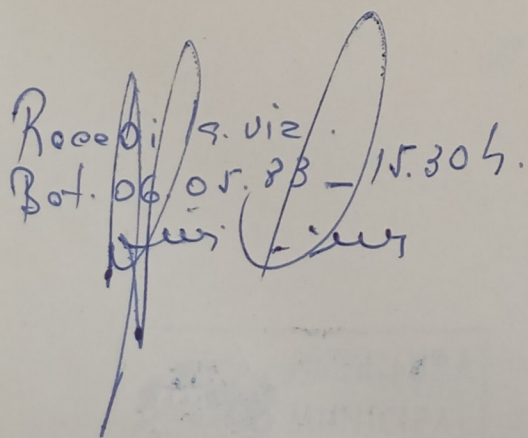 Recebi 1a. via.
Bot. 06.05.83 - 15.30h.